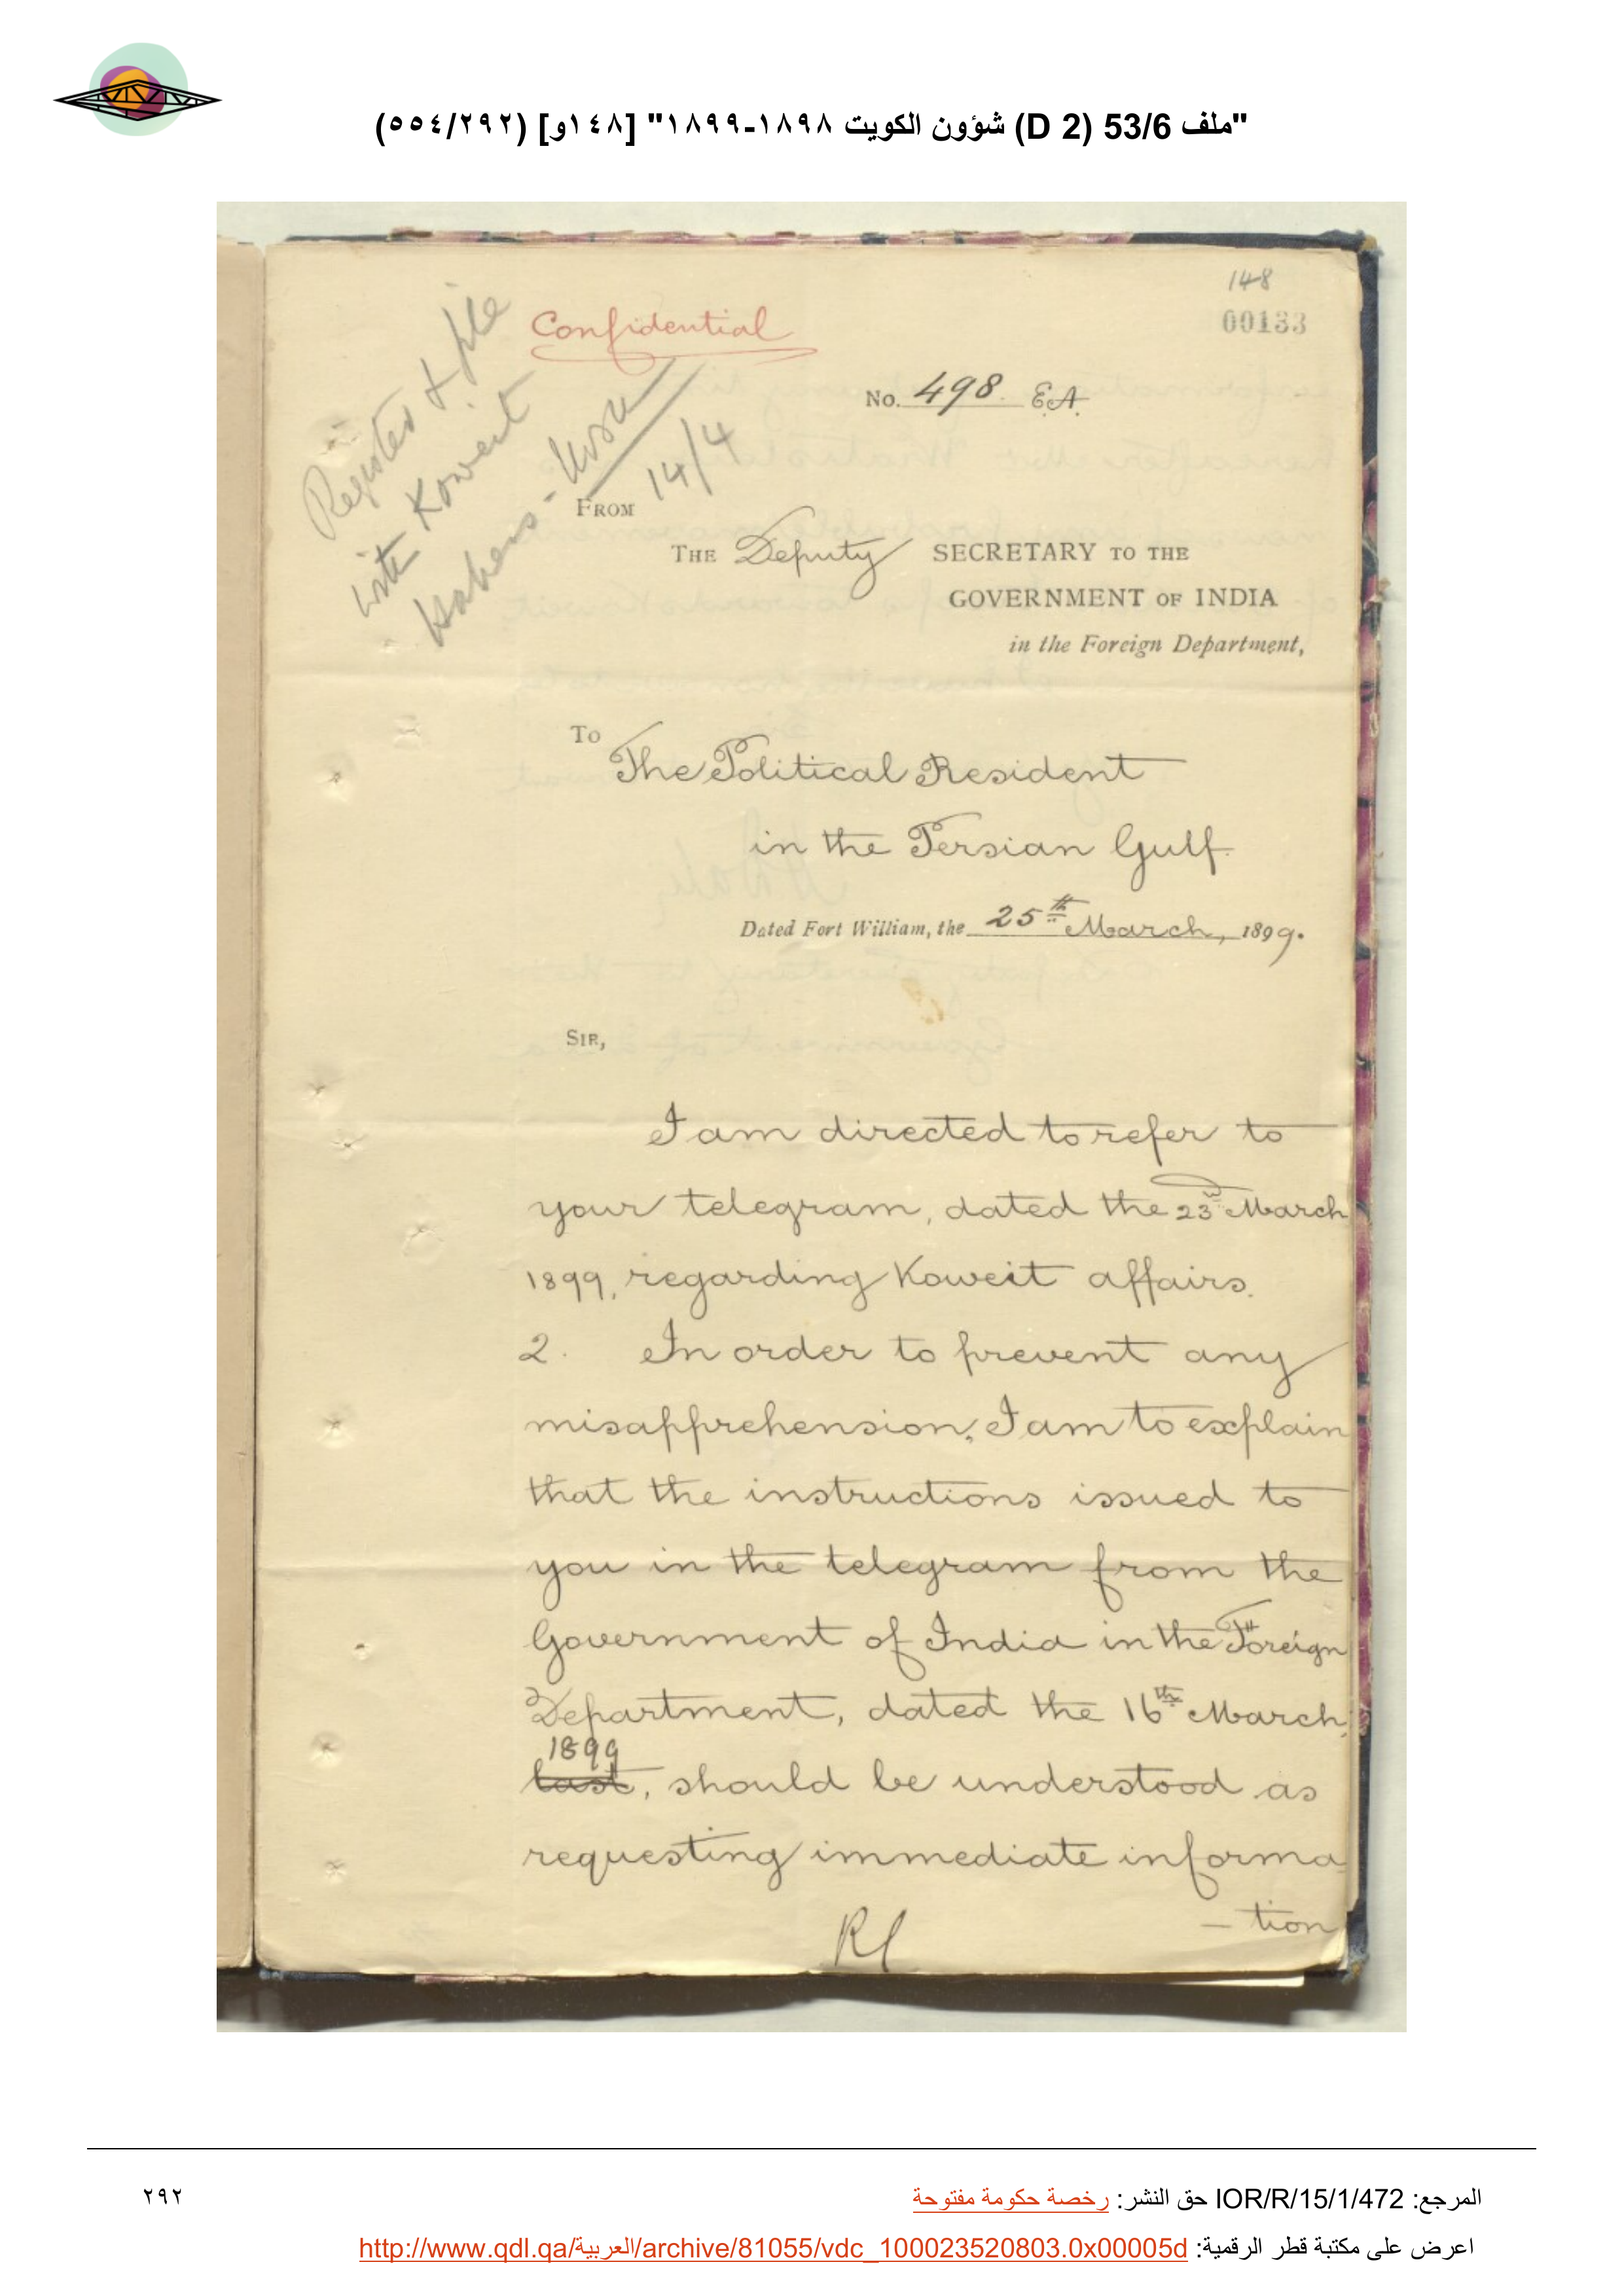 "ملف 53/6 (D 2) شؤون الكويت ١٨٩٨-١٨٩٩" [١٤٨و] (٥٥٤/٢٩٢)
148
00133
Confidential
Registered & file
with Koweit
14/4
No. 498 E.A.
FROM
THE Deputy SECRETARY TO THE
GOVERNMENT OF INDIA
in the Foreign Department,
To
The Political Resident
in the Persian Gulf.
Dated Fort William, the 25th March, 1899.
SIR,
I am directed to refer to
your telegram, dated the 23rd March
1899, regarding Koweit affairs.
2. In order to prevent any
misapprehension, I am to explain
that the instructions issued to
you in the telegram from the
Government of India in the Foreign
Department, dated the 16th March,
1899
last, should be understood as
requesting immediate informa
- tion
المرجع: IOR/R/15/1/472 حق النشر: رخصة حكومة مفتوحة
٢٩٢
اعرض على مكتبة قطر الرقمية: http://www.qdl.qa/العربية/archive/81055/vdc_100023520803.0x00005d